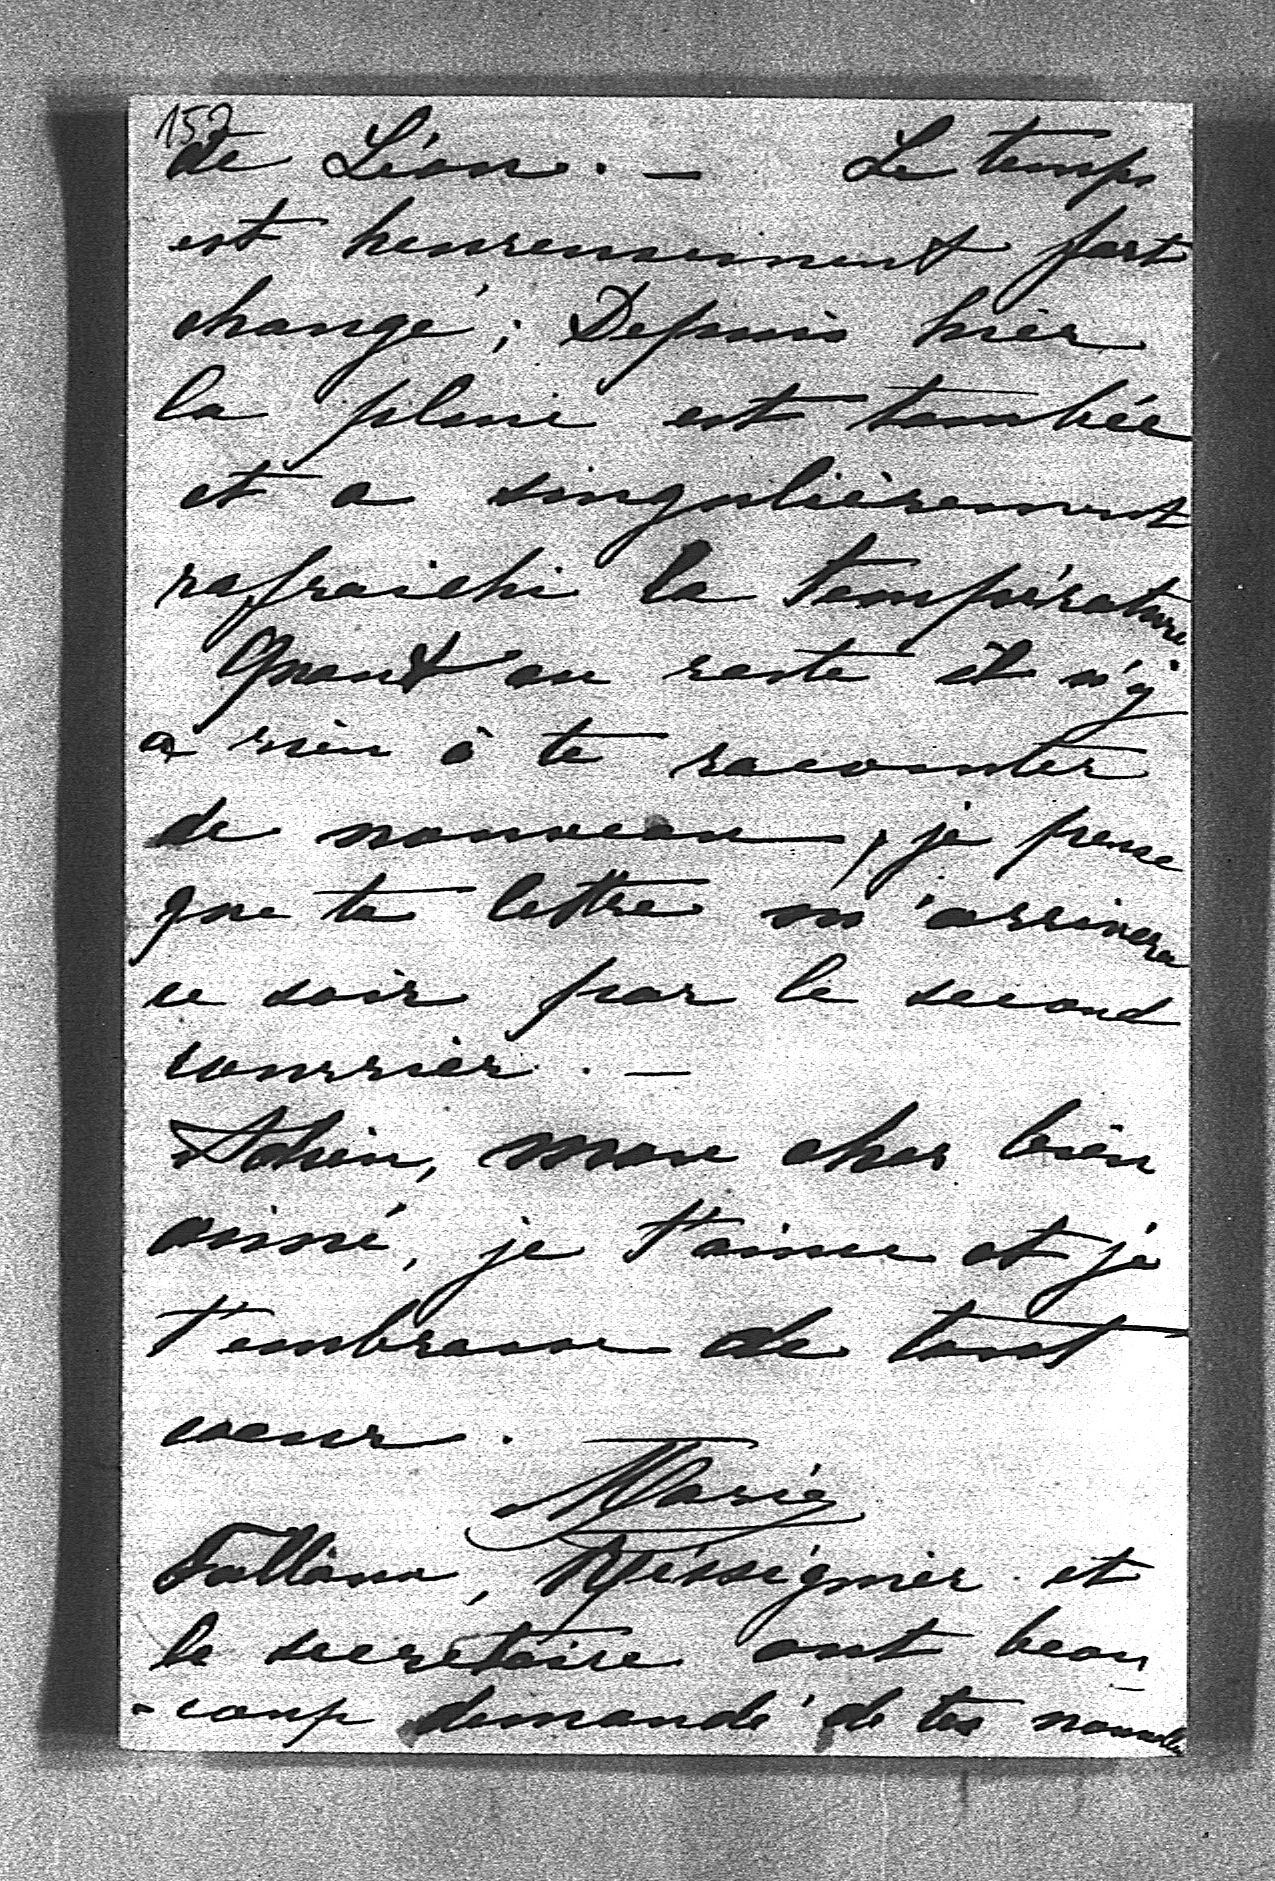 152
de Léon. — Le temps
est heureusement fort
changé ; Depuis hier
la pluie est tombée
et a singulièrement
rafraichi la température
Quant au reste il n'y
a rien à te raconter
de nouveau, je pense
que ta lettre m'arrivera
ce soir par le second
courrier. —
Adieu, mon cher bien
aimé, je t'aime et je
t'embrasse de tout
coeur.
Marie
et
le secrétaire ont beau
-coup demandé de tes nouvelles